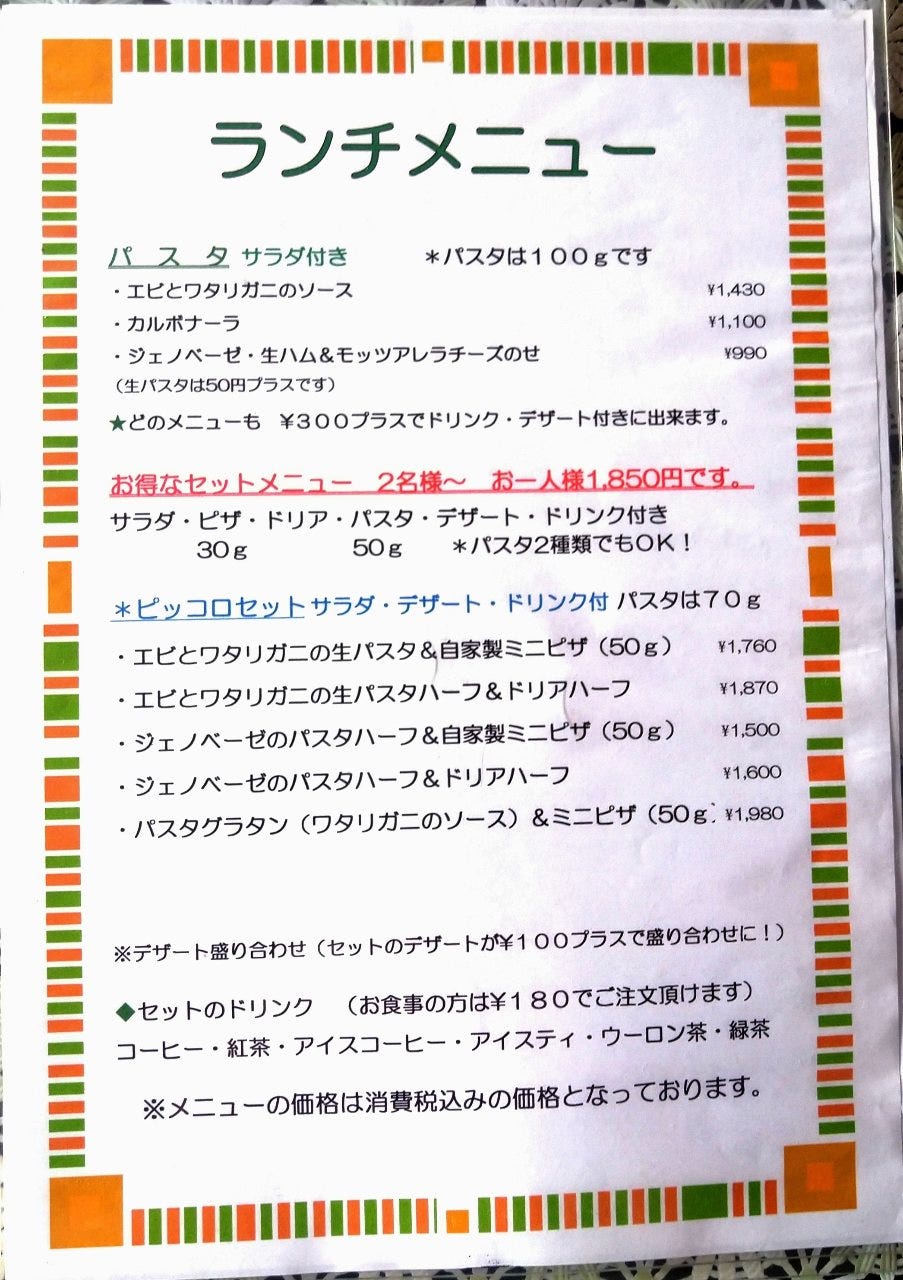 ランチメニュー
パ ス タ サラダ付き ＊パスタは１００ｇです
・エビとワタリガニのソース ¥1,430
・カルボナーラ ¥1,100
・ジェノベーゼ・生ハム＆モッツアレラチーズのせ ¥990
（生パスタは50円プラスです）
★どのメニューも ￥３００プラスでドリンク・デザート付きに出来ます。
お得なセットメニュー 2名様～ お一人様1,850円です。
サラダ・ピザ・ドリア・パスタ・デザート・ドリンク付き
30ｇ 50ｇ ＊パスタ2種類でもOK！
＊ピッコロセット サラダ・デザート・ドリンク付 パスタは７０ｇ
・エビとワタリガニの生パスタ＆自家製ミニピザ（50ｇ） ¥1,760
・エビとワタリガニの生パスタハーフ＆ドリアハーフ ¥1,870
・ジェノベーゼのパスタハーフ＆自家製ミニピザ（50ｇ） ¥1,500
・ジェノベーゼのパスタハーフ＆ドリアハーフ ¥1,600
・パスタグラタン（ワタリガニのソース）＆ミニピザ（50ｇ） ¥1,980
※デザート盛り合わせ（セットのデザートが¥１００プラスで盛り合わせに！）
◆セットのドリンク （お食事の方は¥１８０でご注文頂けます）
コーヒー・紅茶・アイスコーヒー・アイスティ・ウーロン茶・緑茶
※メニューの価格は消費税込みの価格となっております。